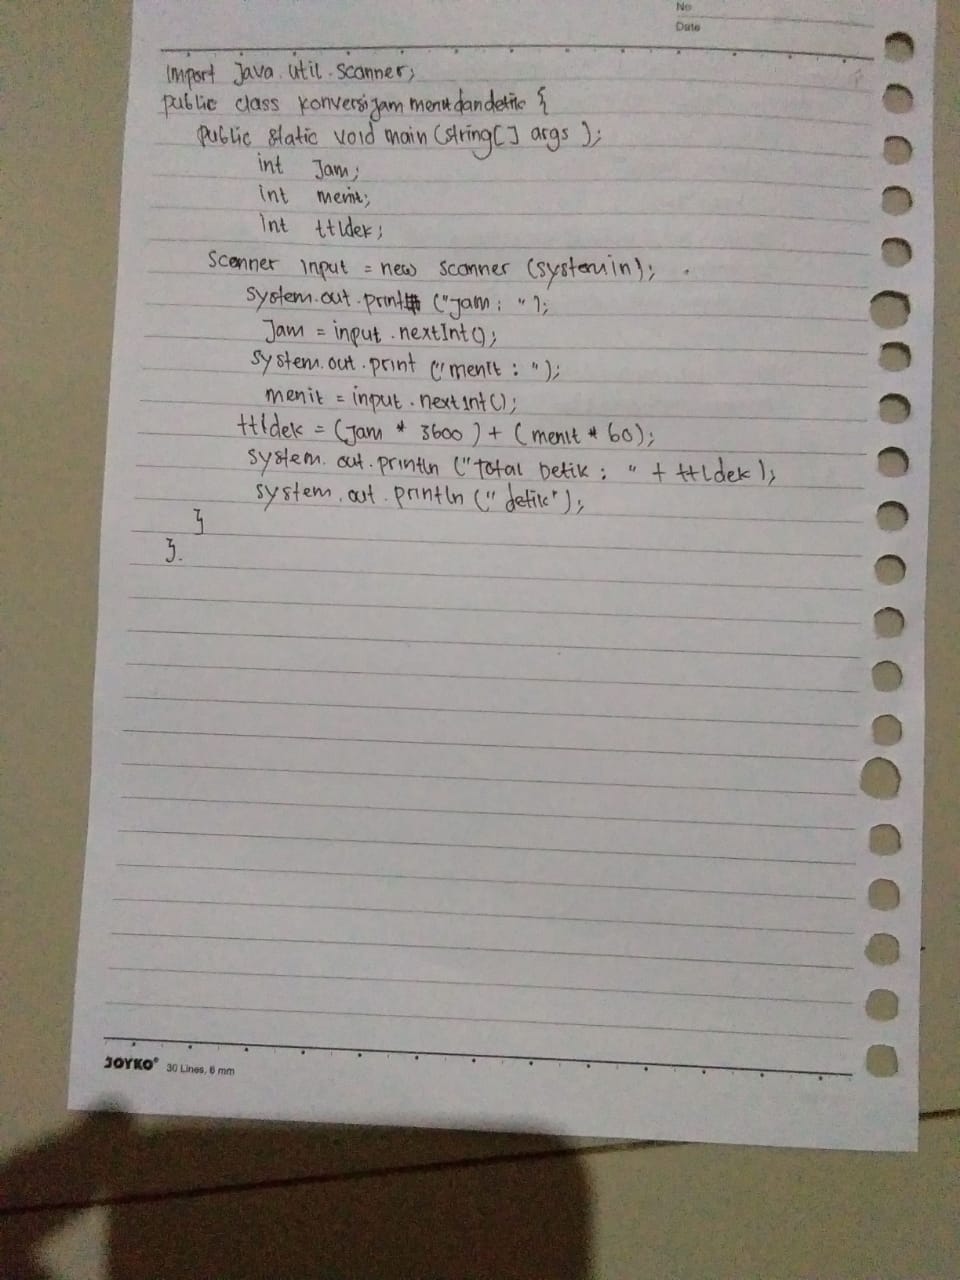 No
Date
import Java.util.Scanner;
public class konversijam menitdandetik {
public static void main (string[] args );
int Jam;
int menit;
int ttldek;
Scanner input = new scanner (system.in);
system.out.print ("jam : ");
Jam = input.nextInt();
system.out.print ("menit : ");
menit = input.nextInt();
ttldek = (jam * 3600) + (menit * 60);
system.out.println ("total Detik : " + ttldek);
system.out.println (" detik");
}
}.
JOYKO® 30 Lines, 6 mm